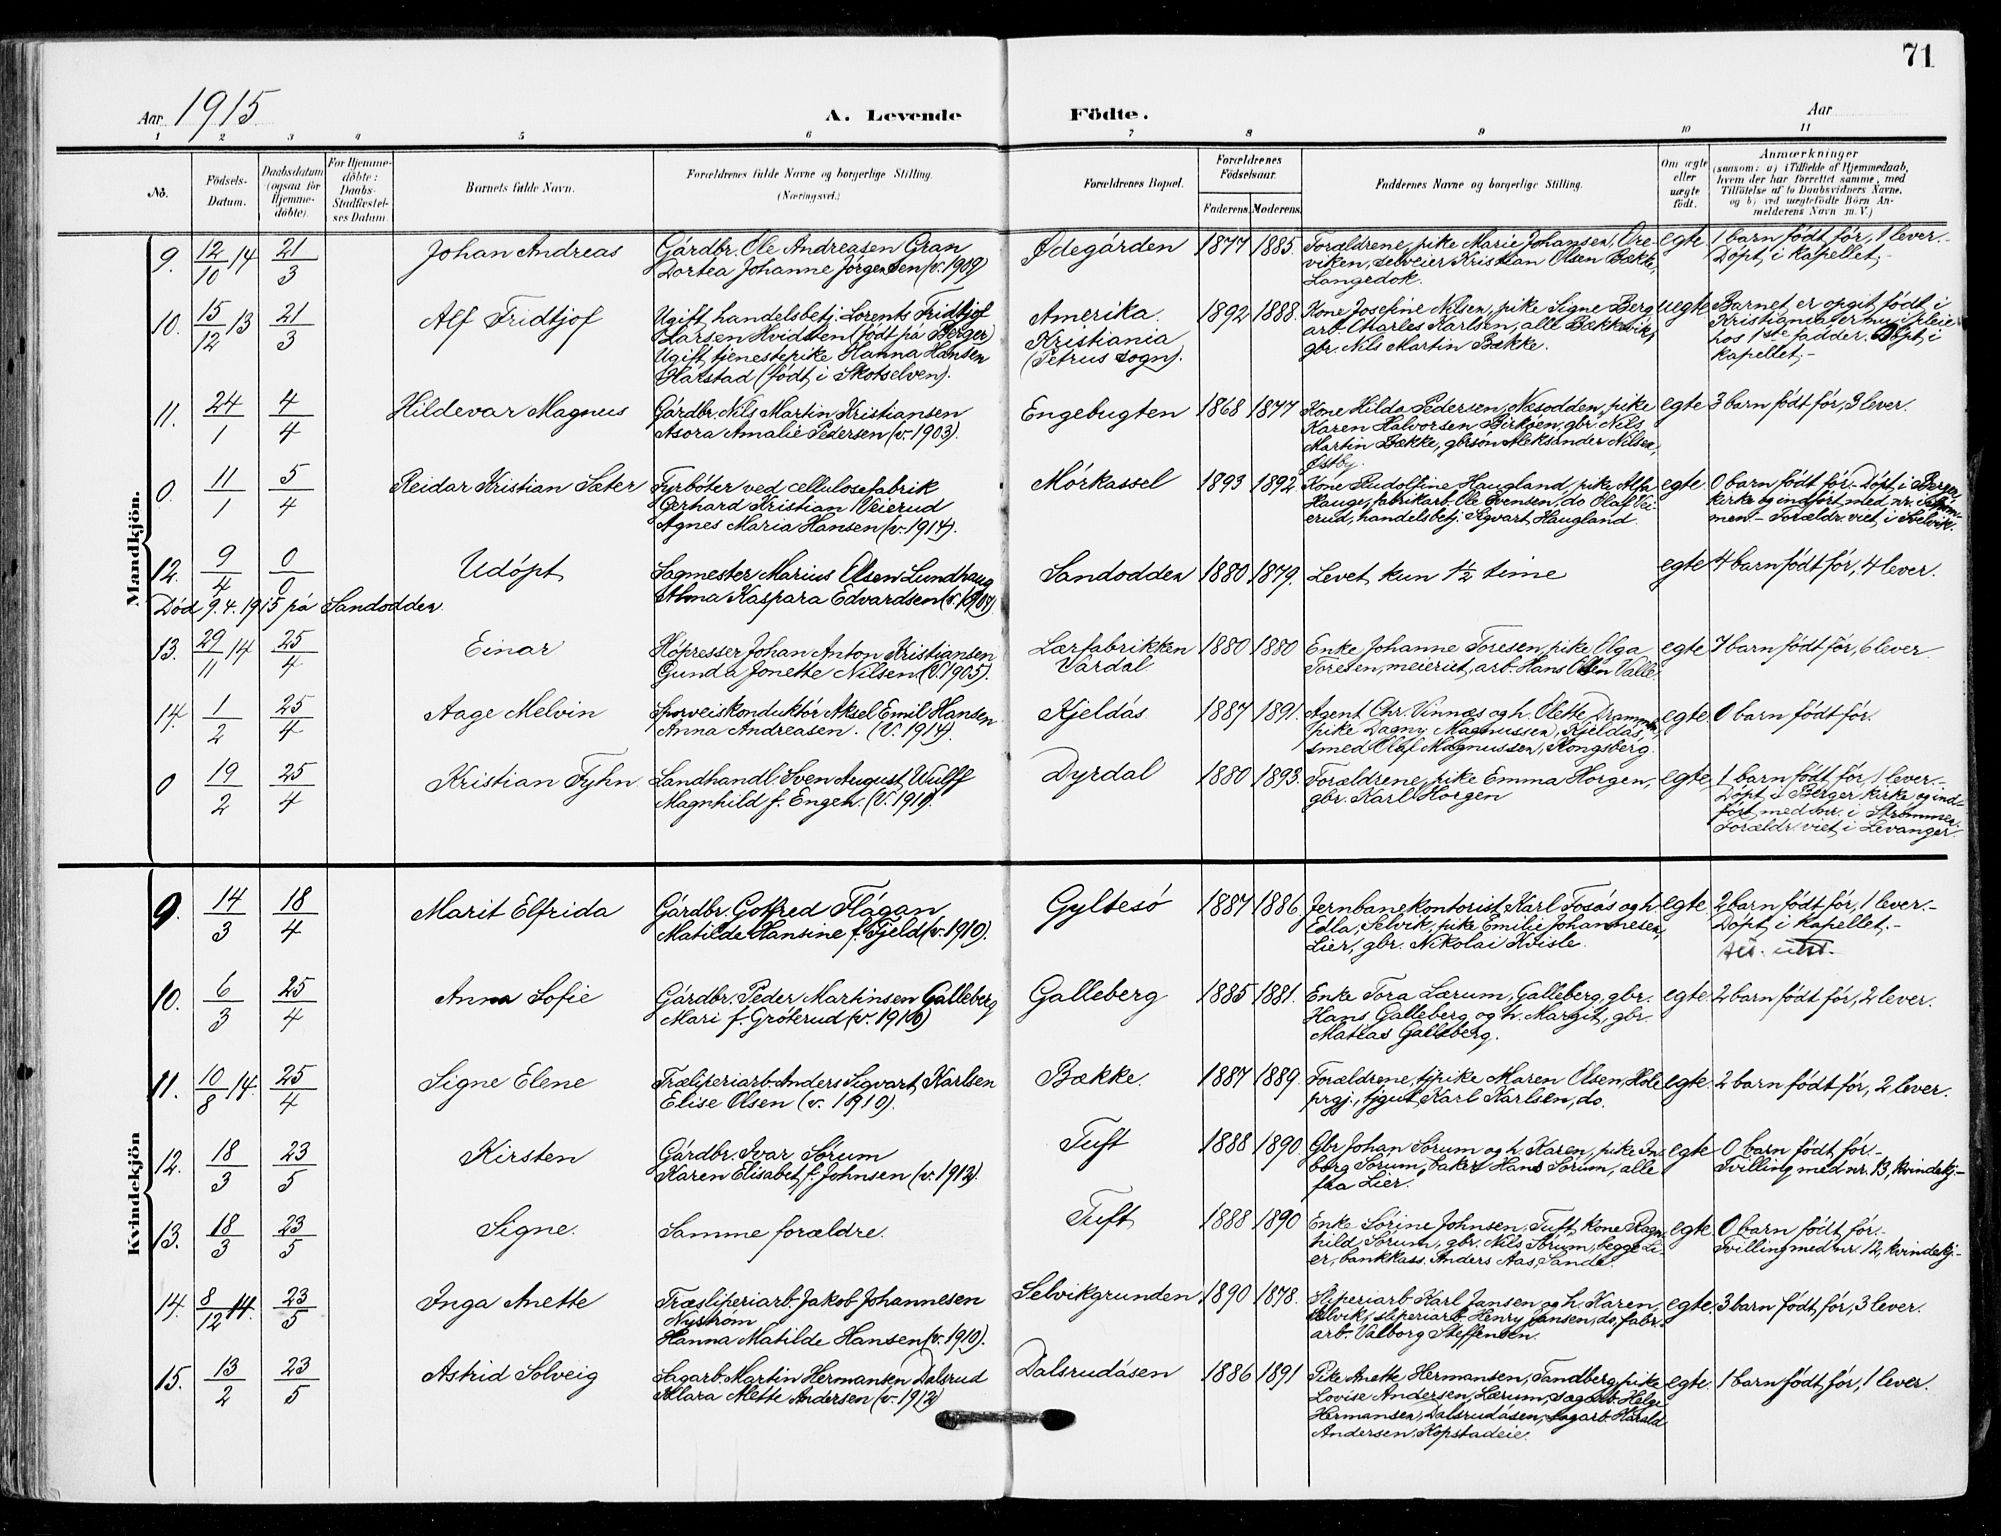 71
Aar 1915 A. Levende Födte. Aar
1 2 3 4 5 6 7 8 9 10 11
No.
Födsels-
Datum.
Daabsdatum
(ogsaa for
Hjemme-
døbte).
For Hjemme-
döbte:
Daabs-
Stadfæstel-
ses Datum.
Barnets fulde Navn.
Forældrenes fulde Navne og borgerlige Stilling.
(Næringsvei.)
Forældrenes Bopæl.
Forældrenes
Födselsaar.
Faderens. Moderens.
Faddernes Navne og borgerlige Stilling.
Om ægte
eller
uægte
født.
Anmærkninger
(saasom: a) i Tilfælde af Hjemmedaab,
hvem der har forrettet samme, med
Tilföielse af to Daabsvidners Navne,
og b) ved uægtefödte Börn An-
melderens Navn m. V.)
Mandkjön.
9. 12/10 14 21/3 Johan Andreas
Gårdbr. Ole Andreasen Gran
Dortea Johanne Jørgensen (v. 1909)
Ødegården 1877 1885.
Forældrene, pike Marie Johansen, Ore-
viken, selveier Kristian Olsen Bække,
Langedok.
egte 1 barn født før, 1 lever.-
Döpt i kapellet;-
10. 15/12 13 21/3 Alf Fridtjof
Ugift handelsbetj. Lorents Fridtjof
Larsen Hvidsten (født på Berger)
Ugift tjenestepike Hanna Hansen
Harstad (født i Skotselven).
Amerika.
Kristiania
(Petrus sogn).
1892 1888.
Kone Josefine Nilsen, pike Signe Berg
arb. Charles Karlsen, alle Bækkevik,
gbr. Nils Martin Bække.
uegte Barnet er opgit født i
Kristiania er nu i pleie
hos 1ste fadder. Döpt i
kapellet;-
11. 24/1 4/4 Hildevar Magnus
Gårdbr. Nils Martin Kristiansen
Asora Amalie Pedersen (v. 1903).
Engebugten 1868 1877
Kone Hilda Pedersen, Næsodden, pike
Karen Halvorsen Birköen, gbr. Nils
Martin Bække, gbrsön Aleksander Nilsen,
Østby.
egte 3 barn født før, 3 lever.
0. 11/1 5/4 Reidar Kristian Sæter
Fyrböter ved cellulosefabrik
Gerhard Kristian Veierud
Agnes Maria Hansen (v. 1914).
Mörkassel 1893 1892
Kone Rudolfine Haugland, pike Alfa
Hauge, fabrikarb. Ole Evensen, do Olaf Vei-
erud, handelsbetj. Sigvart Haugland.
egte 0 barn født før.- Döpt i Berger
kirke og indført med nr. i Strøm-
men.- Forældr. viet i Svelvik.
12. 9/4 0/0 Udöpt
Død 9.4.1915 på Sandodden.
Sagmester Marius Olsen Lundhaug
Alma Kaspara Edvardsen (v. 1907)
Sandodden 1880 1879.
Levet kun 1½ time
egte 4 barn født før, 4 lever.
13. 29/11 14 25/4 Einar
Höpresser Johan Anton Kristiansen
Gunda Jonette Nilsen (V. 1905).
Lærfabrikken
Vardal
1880 1880
Enke Johanne Toresen, pike Olga
Toresen, meieriet, arb. Hans Olsen Valle.
egte 7 barn født før, 6 lever.
14. 1/2 25/4 Aage Melvin
Sporveiskonduktör Aksel Emil Hansen
Anna Andreasen. (V. 1914).
Kjeldås 1887 1891.
Agent Chr. Vinnæs og h. Olette Drammen
pike Dagny Magnussen, Kjeldås,
smed Olaf Magnussen, Kongsberg.
egte. 0 barn født før.
0 19/2 25/4 Kristian Fyhn.
Landhandl. Sven August Wulff
Magnhild f. Engen. (V. 1910.
Dyrdal 1880 1893.
Forældrene, pike Emma Horgen,
gbr. Karl Horgen
egte, 1 barn født før 1 lever.-
Döpt i Berger kirke og ind-
ført med nr. i Strømmen.
Forældr. viet i Levanger.
Kvindekjön
9. 14/3 18/4 Marit Elfrida
Gårdbr. Gotfred Flågan
Matilde Hansine f. Fjeld (v. 1910).
Gyltesö 1887 1886
Jernbanekontorist Karl Fosås og h.
Edla, Selvik, pike Emilie Johannesen,
Lier, gbr. Nikolai Kvisle.
egte. 2 barn født før, 1 lever.-
Döpt i kapellet;-
10. 6/3 25/4 Anna Sofie
Gårdbr. Peder Martinsen Galleberg
Mari f. Gröterud (v. 1910)
Galleberg 1885 1881.
Enke Tora Lærum, Galleberg, gbr.
Hans Galleberg og h. Margit, gbr.
Matias Galleberg.
egte. 2 barn født før, 2 lever.
11. 10/8 14. 25/4 Signe Elene
Træsliperiarb. Anders Sigvart Karlsen
Elise Olsen (v. 1910).
Bække. 1887 1889.
Forældrene, tjpike Maren Olsen, Hole
prgj., tjgut Karl Karlsen, do.
egte. 2 barn født før, 2 lever.
12. 18/3 23/5 Kirsten
Gårdbr. Ivar Sörum
Karen Elisabet f. Johnsen (v. 1912).
Tuft 1888 1890
Gbr Johan Sörum og h. Karen, pike In-
borg Sörum, baker Hans Sörum, alle
fra Lier.
egte 0 barn født før.-
Tvilling med nr. 13, kvindekj-
13. 18/3 23/5 Signe.
Samme forældre.
Tuft 1888 1890
Enke Sörine Johnsen, Tuft, kone Ragn-
hild Sörum, gbr. Nils Sörum, begge Li-
er, bankkass. Anders Aas, Sande.
egte. 0 barn født før.-
Tvilling med nr. 12, kvindekj-
14. 8/12 14. 23/5 Inga Anette
Træsliperiarb. Jakob Johannesen
Nyström
Hanna Matilde Hansen (v. 1910).
Selvikgrunden 1890 1878.
Sliperiarb. Karl Jansen og h. Karen,
Selvik, sliperiarb. Henry Jansen, do, fabr.
arb. Valborg Steffensen.
egte. 3 barn født før, 3 lever.
15. 13/2 23/5 Astrid Solveig
Sagarb. Martin Hermansen Dalsrud
Klara Alette Andersen (v. 1912)
Dalsrudåsen 1886 1891
Pike Anette Hermansen, Tandberg, pike
Lovise Andersen, Lærum, sagarb. Helge
Hermansen, Dalsrudåsen, sagarb. Harald
Andersen, Kopstadeie.
egte. 1 barn født før, 1 lever.